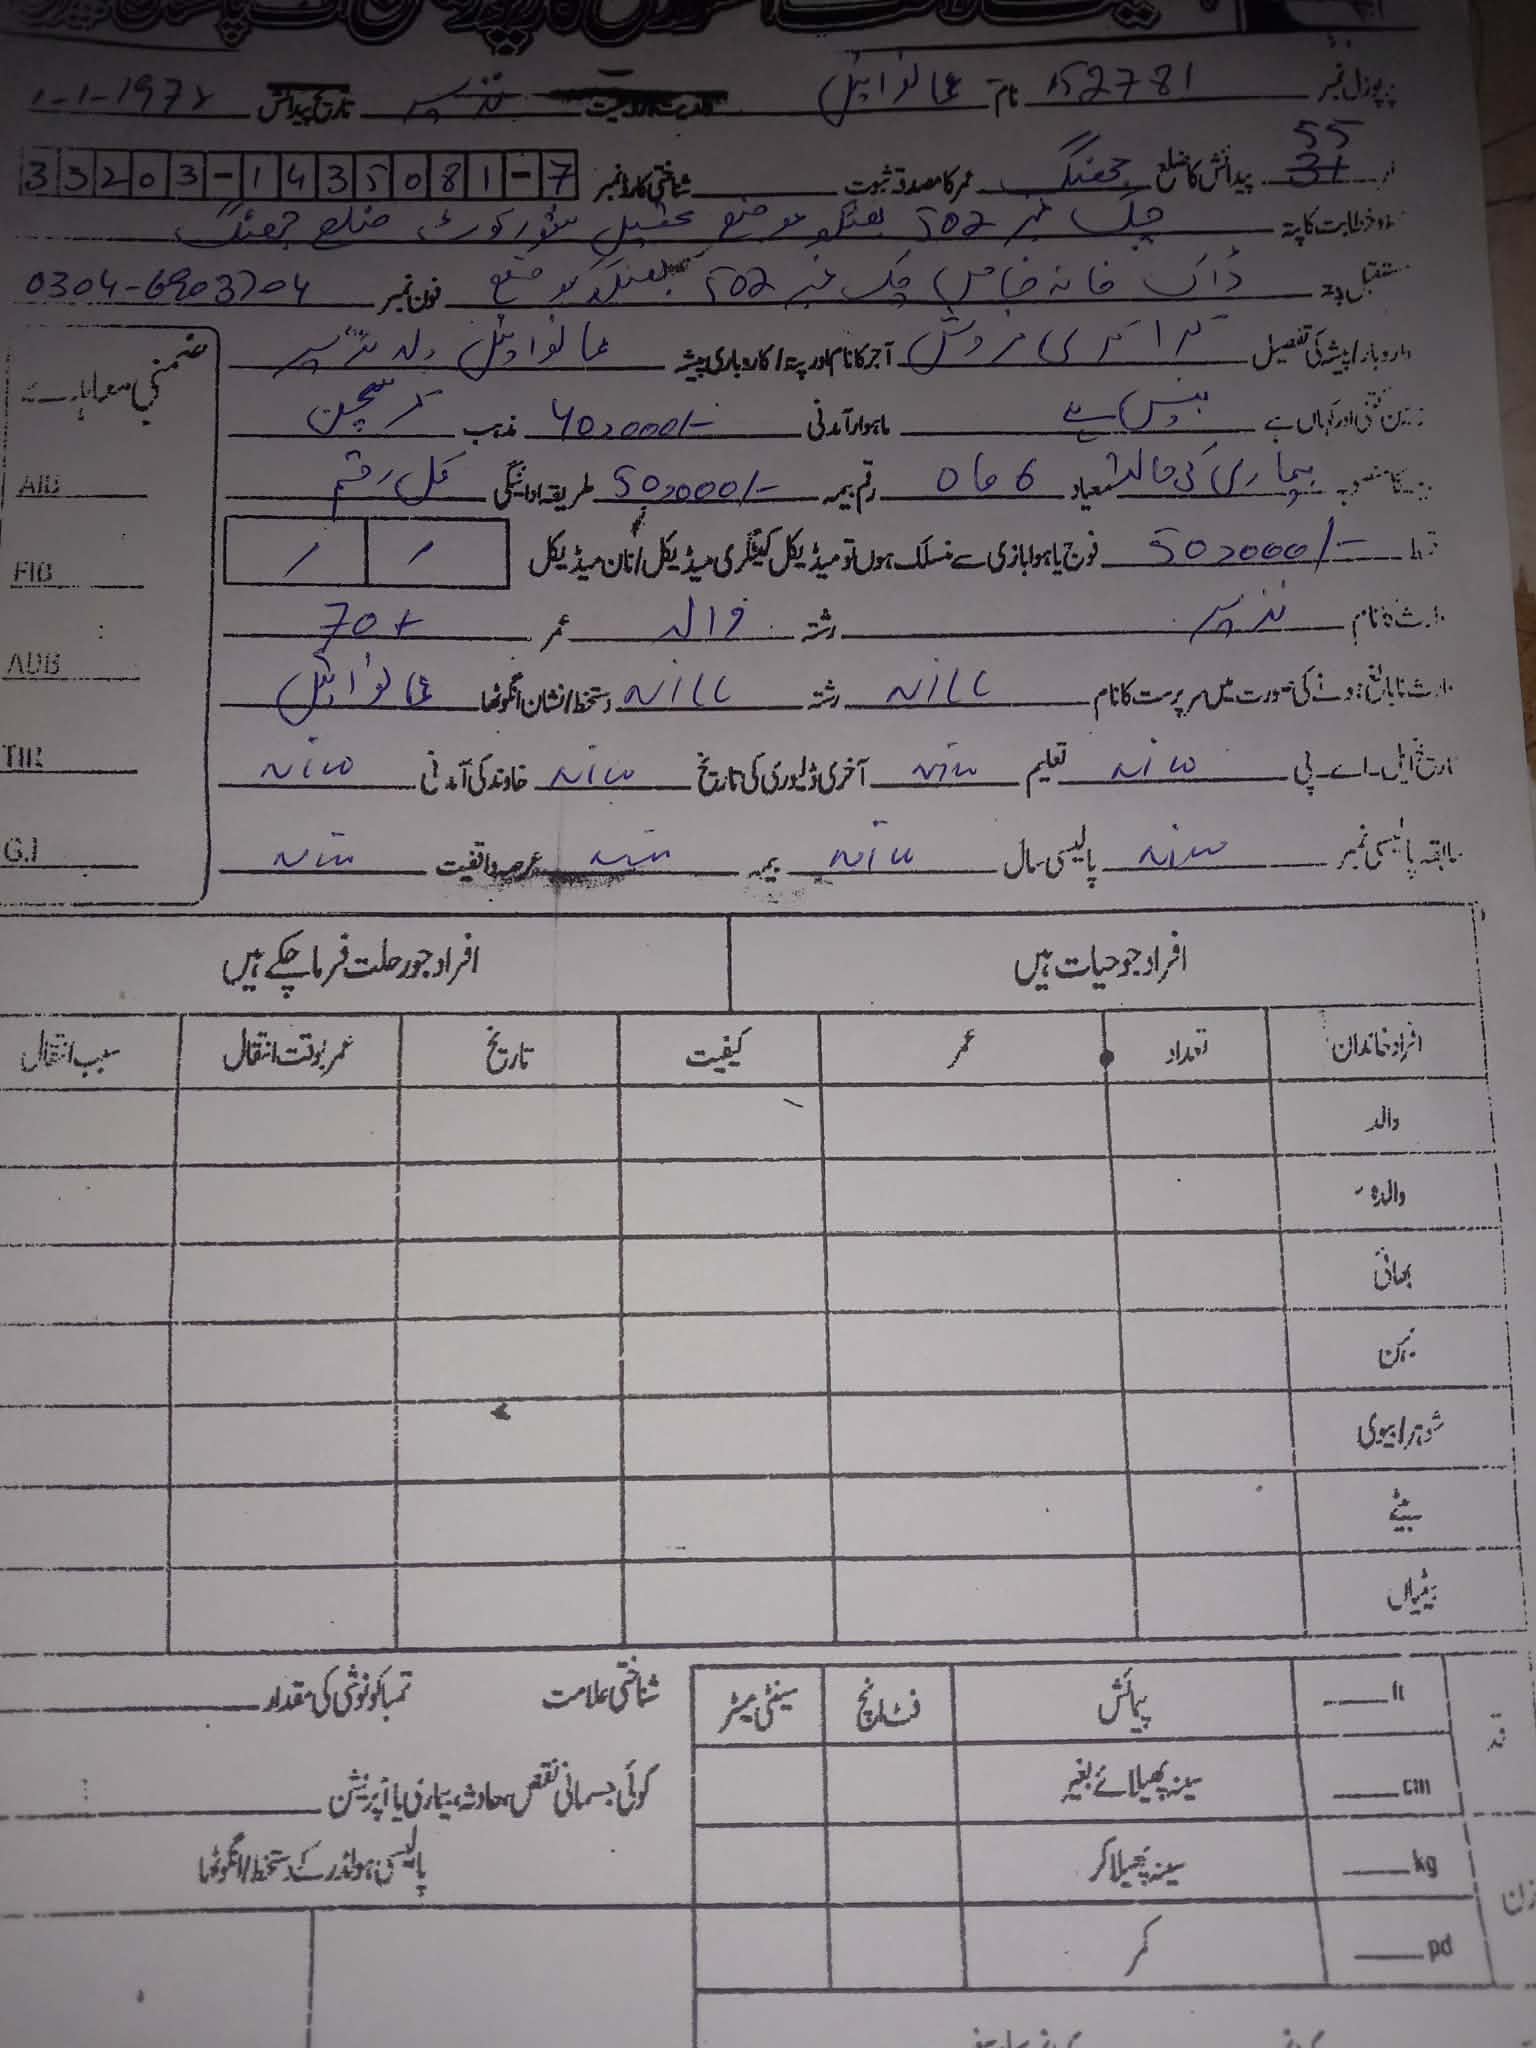 پرپوزل نمبر 152781 نام عمانوایل ولدیت/زوجیت نذیر تاریخ پیدائش 1-1-1972
55
عمر 31 پیدائش کا ضلع جھنگ عمر کا مصدقہ ثبوت شناختی کارڈ نمبر 33203-1435081-7
خط و خطابت کا پتہ چک نمبر 502 موضع تحصیل شورکوٹ ضلع جھنگ
مستقبل پتہ ڈاک خانہ خاص چک نمبر 502 موضع فون نمبر 0304-6903704
کاروبار/پیشہ کی تفصیل فروش آجر کا نام اور پتہ/کاروباری پیشہ عمانوایل ولد نذیر
زمین کتنی اور کہاں ہے نہیں ہے ماہوار آمدنی 40,000/- مذہب کرسچن
بیمہ کا منصوبہ بیماری کی حالت میعاد 6 ماہ رقم بیمہ 50,000/- طریقہ ادائیگی کل رقم
قسط 50,000/- فوج یا ہوابازی سے منسلک ہوں تو میڈیکل کیٹگری میڈیکل/نان میڈیکل
وارث کا نام نذیر رشتہ والد عمر 70+
وارث نابالغ ہونے کی صورت میں سرپرست کا نام Nill رشتہ Nill دستخط/نشان انگوٹھا عمانوایل
تاریخ ایل۔اے۔پی Nill تعلیم Nill آخری ڈلیوری کی تاریخ Nill خاوند کی آمدنی Nill
سابقہ پالیسی نمبر Nill پالیسی سال Nill بیمہ Nill عرصہ واقفیت Nill
ضمنی معاہدے
AIB
FIB
ADB
TIR
G.I
افراد جو حیات ہیں افراد جو رحلت فرما چکے ہیں
افراد خاندان تعداد عمر کیفیت تاریخ عمر بوقت انتقال سبب انتقال
والد
والدہ
بھائی
بہن
شوہر/بیوی
بیٹے
بیٹیاں
قد ft پیمائش فٹ انچ سینٹی میٹر شناختی علامت تمباکو نوشی کی مقدار
cm سینہ پھیلائے بغیر کوئی جسمانی نقص، حادثہ، بیماری یا آپریشن
وزن kg سینہ پھیلا کر پالیسی ہولڈر کے دستخط/انگوٹھا
pd کمر